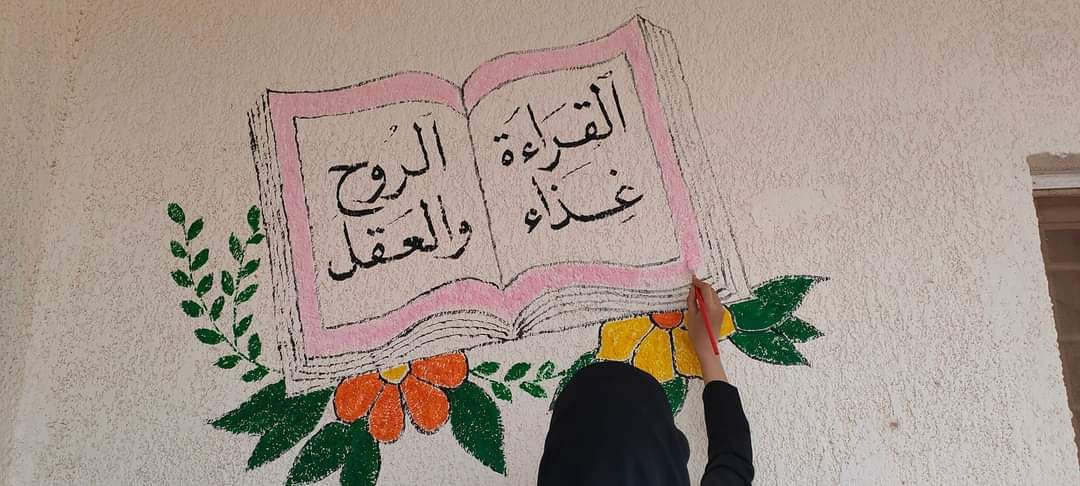 القراءة
غذاء
الروح
والعقل